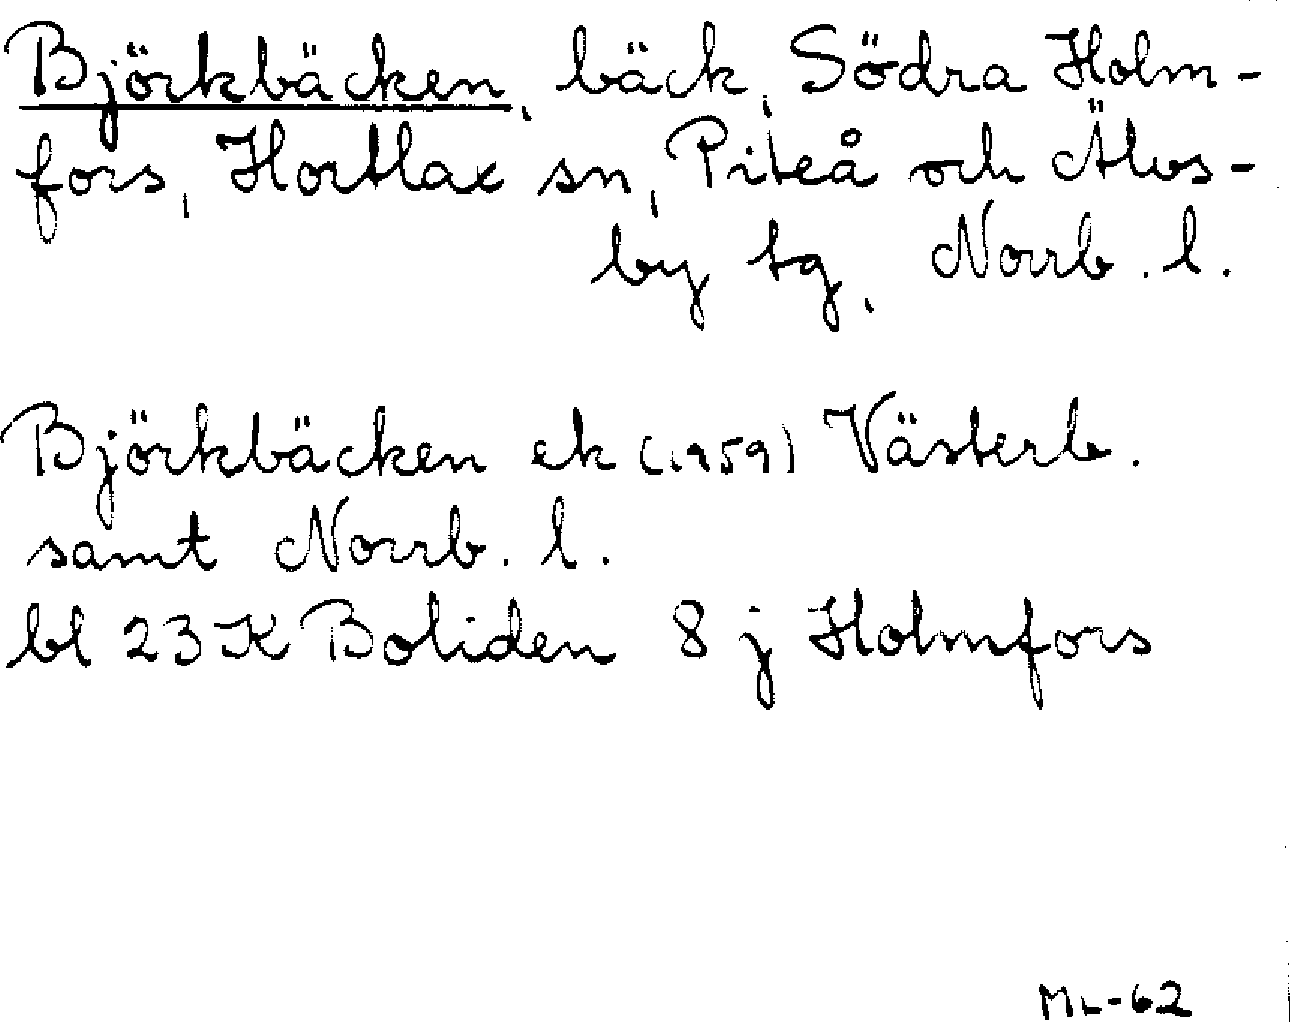 Björkbäcken, bäck, Södra Holm-
fors, Hortlax sn, Piteå och Älvs-
by tg, Norrb. l.
Björkbäcken ek (1959) Västerb.
samt Norrb. l.
bl 23K Boliden 8 j Holmfors
ML-62